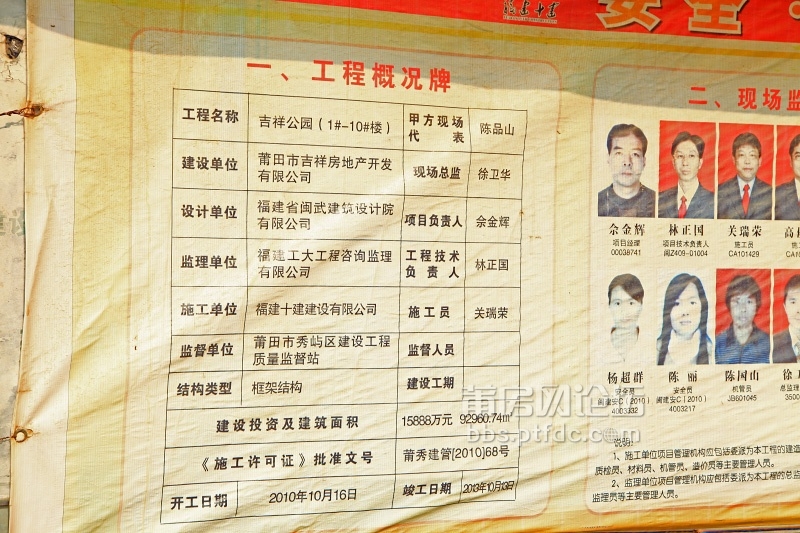 福建十建
安全·
一、工程概况牌
工程名称 吉祥公园（1#-10#楼） 甲方现场 陈品山
代 表
建设单位 莆田市吉祥房地产开发 现场总监 徐卫华
有限公司
设计单位 福建省闽武建筑设计院 项目负责人 佘金辉
有限公司
监理单位 福建工大工程咨询监理 工程技术 林正国
有限公司 负 责 人
施工单位 福建十建建设有限公司 施 工 员 关瑞荣
监督单位 莆田市秀屿区建设工程 监督人员
质量监督站
结构类型 框架结构 建设工期
建设投资及建筑面积 15888万元 92960.74㎡
《施工许可证》批准文号 莆秀建管[2010]68号
开工日期 2010年10月16日 竣工日期 2013年10月13日
二、现场监
佘金辉 林正国 关瑞荣
项目经理 项目技术负责人 施工员
00038741 闽Z409-01004 CA101429
杨超群 陈 丽 陈国山
安全员 安全员 机管员 总监理
闽建安C（2010） 闽建安C（2010） JB601045
4003332 4003217
说明:
1、施工单位项目管理机构应包括委派为本工程的建造
质检员、材料员、机管员、造价员等主要管理人员。
2、监理单位项目管理机构应包括委派为本工程的总监
监理员等主要管理人员。
莆房网论坛
bbs.ptfdc.com